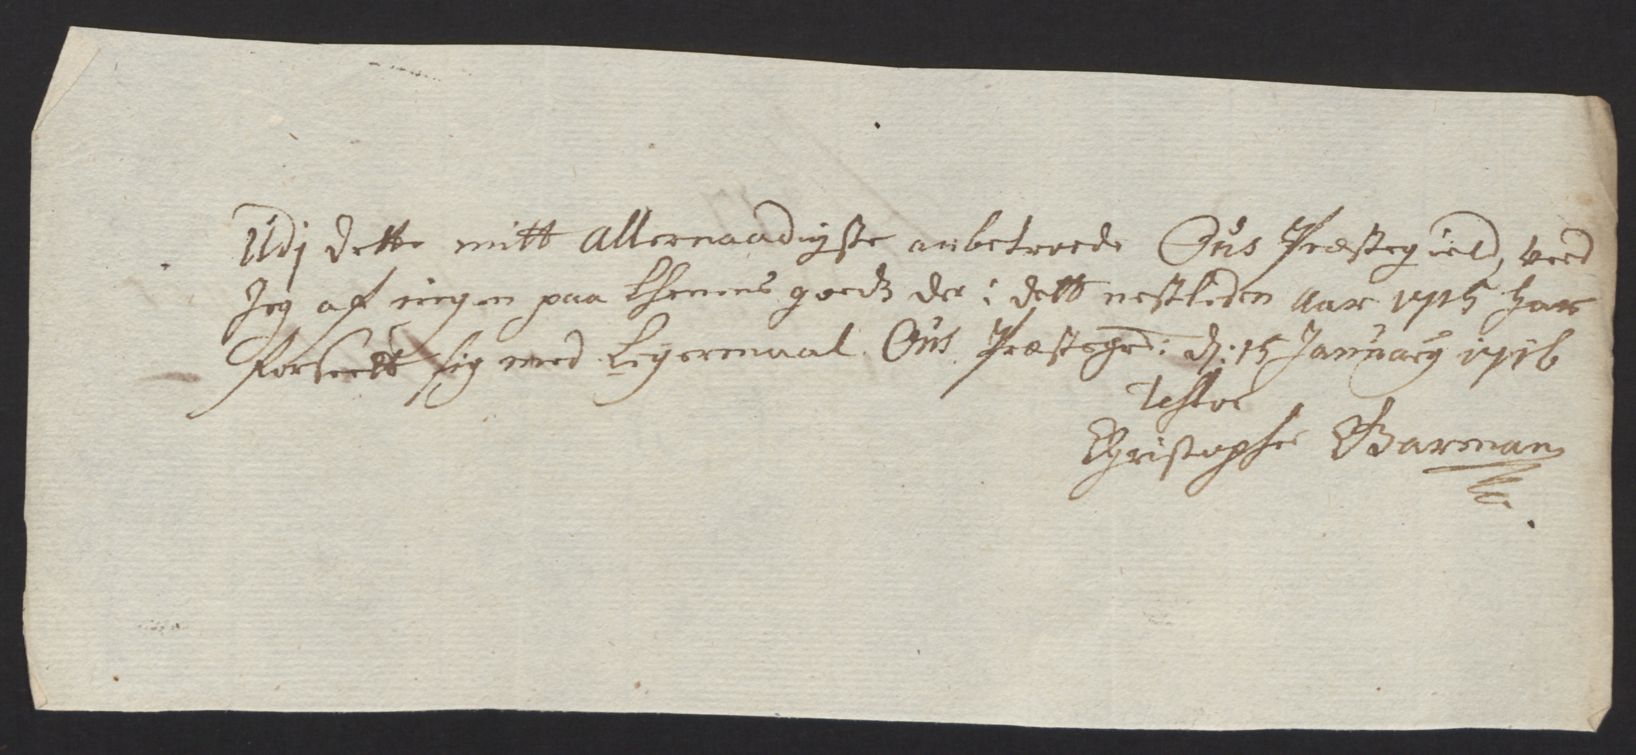 Udj dette mitt allernaadigste anbetroede Ous Præstegield, veed
Jeg af ingen paa Eyeris goedz der i dett nestleden aar 1715 har
forseett sig med Leyermaal. Ous Præstegrd: d: 15 January 1716
Testor
Christopher Barman